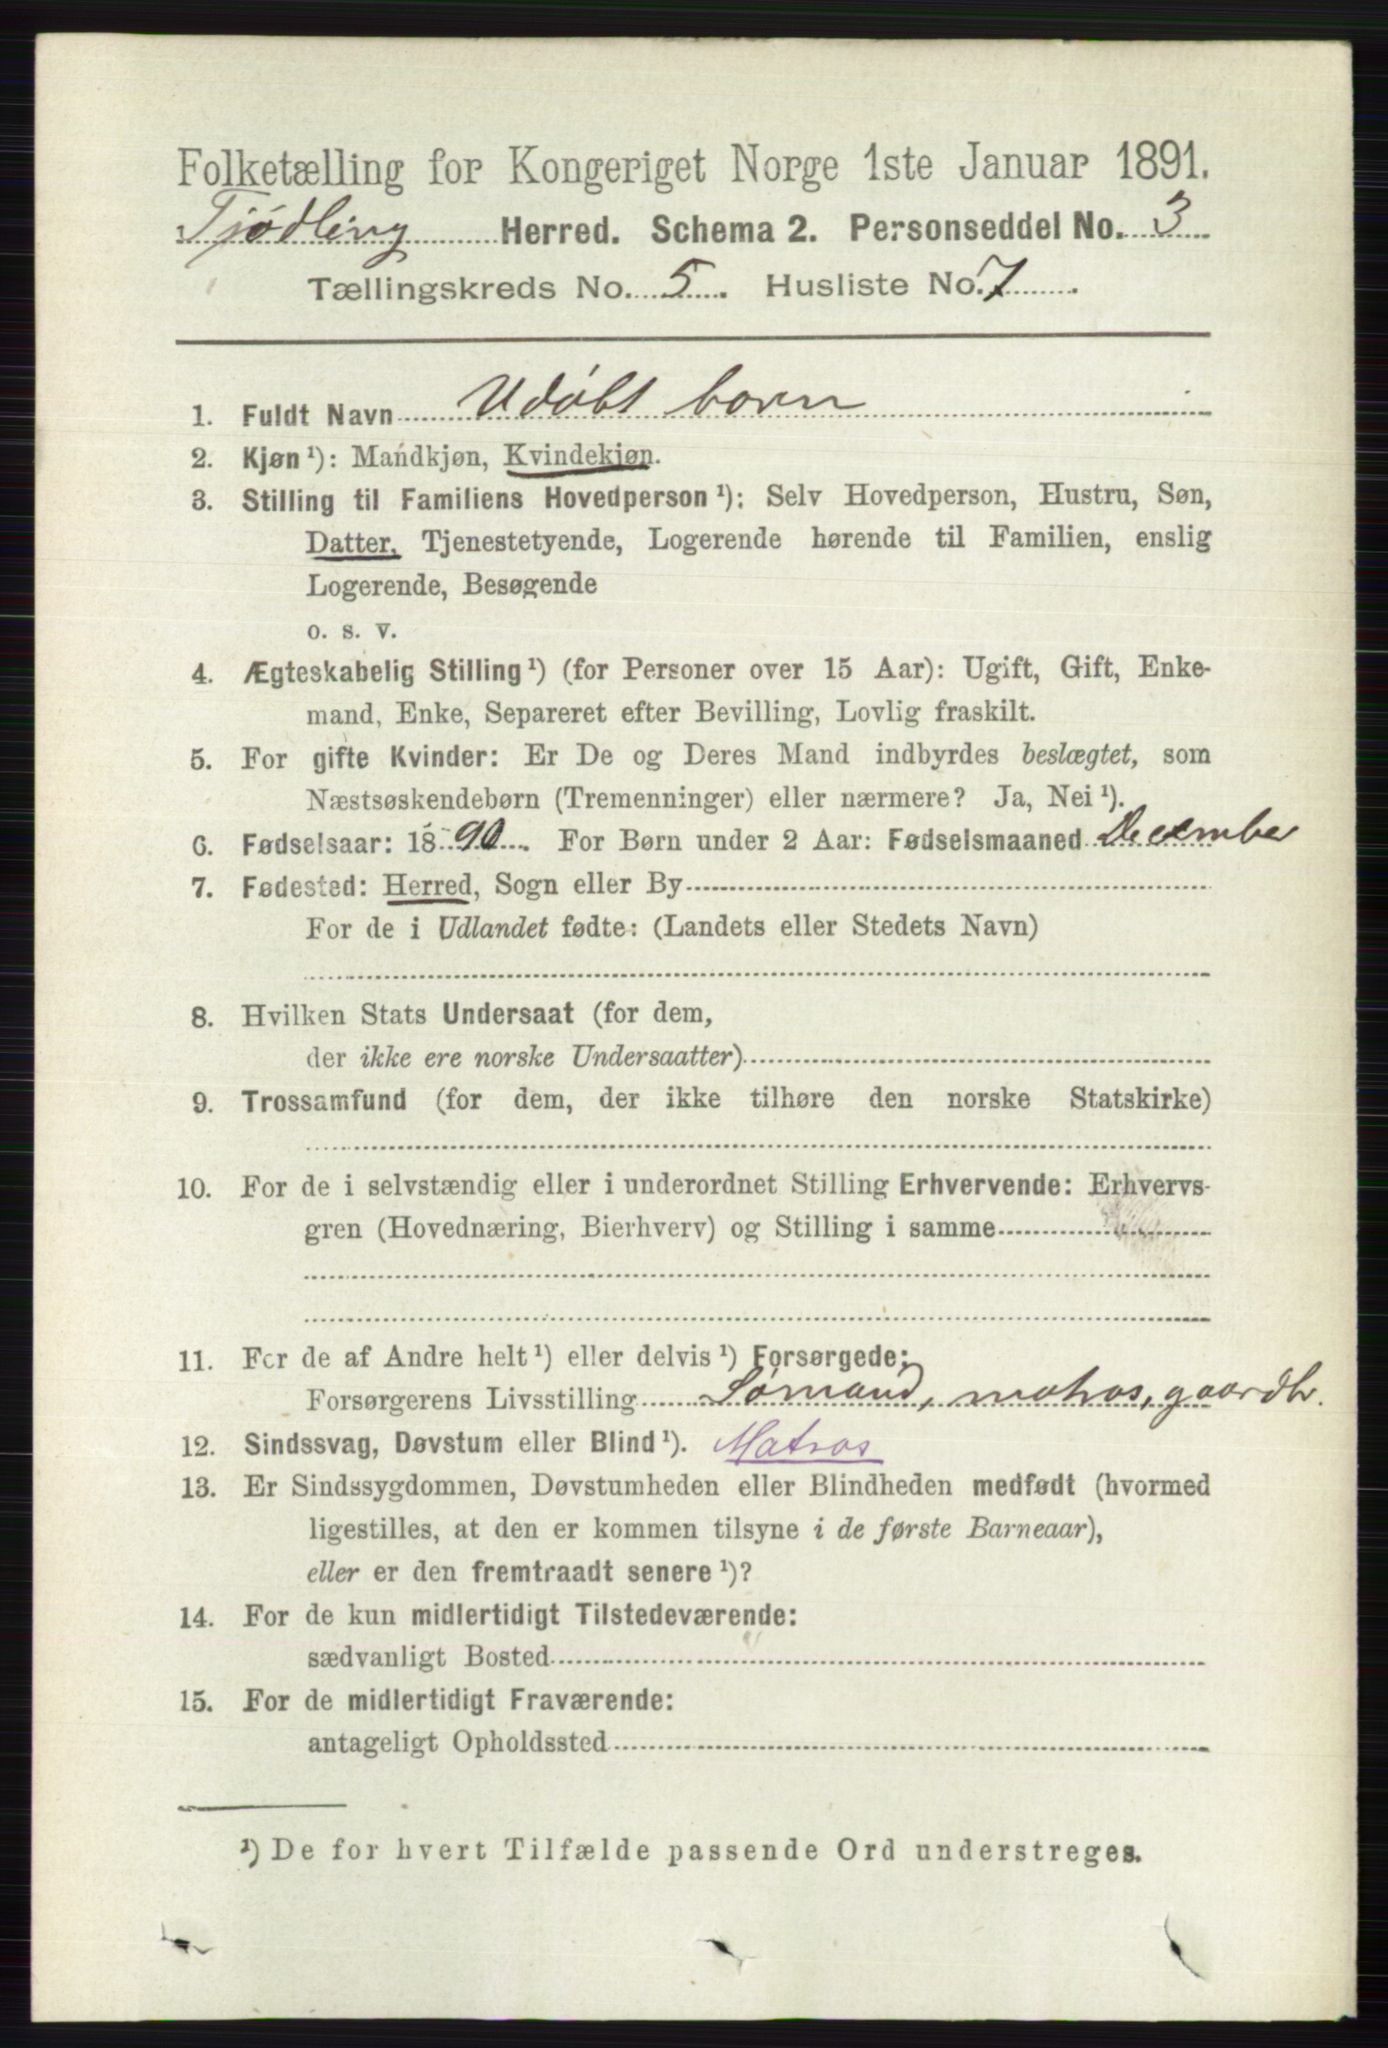 Folketælling for Kongeriget Norge 1ste Januar 1891.
Tjødling Herred. Schema 2. Personseddel No. 3
Tællingskreds No. 5. Husliste No. 7.
1. Fuldt Navn Udøbt barn
2. Kjøn ¹): Mandkjøn, Kvindekjøn.
3. Stilling til Familiens Hovedperson ¹): Selv Hovedperson, Hustru, Søn,
Datter, Tjenestetyende, Logerende hørende til Familien, enslig
Logerende, Besøgende
o. s. v.
4. Ægteskabelig Stilling ¹) (for Personer over 15 Aar): Ugift, Gift, Enke-
mand, Enke, Separeret efter Bevilling, Lovlig fraskilt.
5. For gifte Kvinder: Er De og Deres Mand indbyrdes beslægtet, som
Næstsøskendebørn (Tremenninger) eller nærmere? Ja, Nei ¹).
6. Fødselsaar: 1890. For Børn under 2 Aar: Fødselsmaaned December
7. Fødested: Herred, Sogn eller By
For de i Udlandet fødte: (Landets eller Stedets Navn)
8. Hvilken Stats Undersaat (for dem,
der ikke ere norske Undersaatter)
9. Trossamfund (for dem, der ikke tilhøre den norske Statskirke)
10. For de i selvstændig eller i underordnet Stilling Erhvervende: Erhvervs-
gren (Hovednæring, Bierhverv) og Stilling i samme
11. For de af Andre helt ¹) eller delvis ¹) Forsørgede:
Forsørgerens Livsstilling Sømand, matros, gaardbr.
12. Sindssvag, Døvstum eller Blind ¹). Matros
13. Er Sindssygdommen, Døvstumheden eller Blindheden medfødt (hvormed
ligestilles, at den er kommen tilsyne i de første Barneaar),
eller er den fremtraadt senere ¹)?
14. For de kun midlertidigt Tilstedeværende:
sædvanligt Bosted
15. For de midlertidigt Fraværende:
antageligt Opholdssted
¹) De for hvert Tilfælde passende Ord understreges.